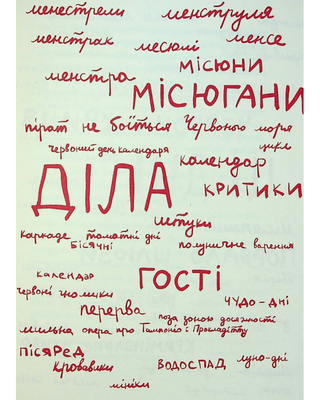 менестрелі менструля
менстрак месюлі менсе
менстра місюни
місюгани
пірат не боїться Червоного моря
червоний день календаря цикл
календар
ДІЛА критики
штуки
каркаде томатні дні
бісячні полуничне варення
календар гості
червоні гномики чудо-дні
перерва поза зоною досяжності
мильна опера про Тампонію і Прокладітту
пісяред
кровавики водоспад луно-дні
мініки